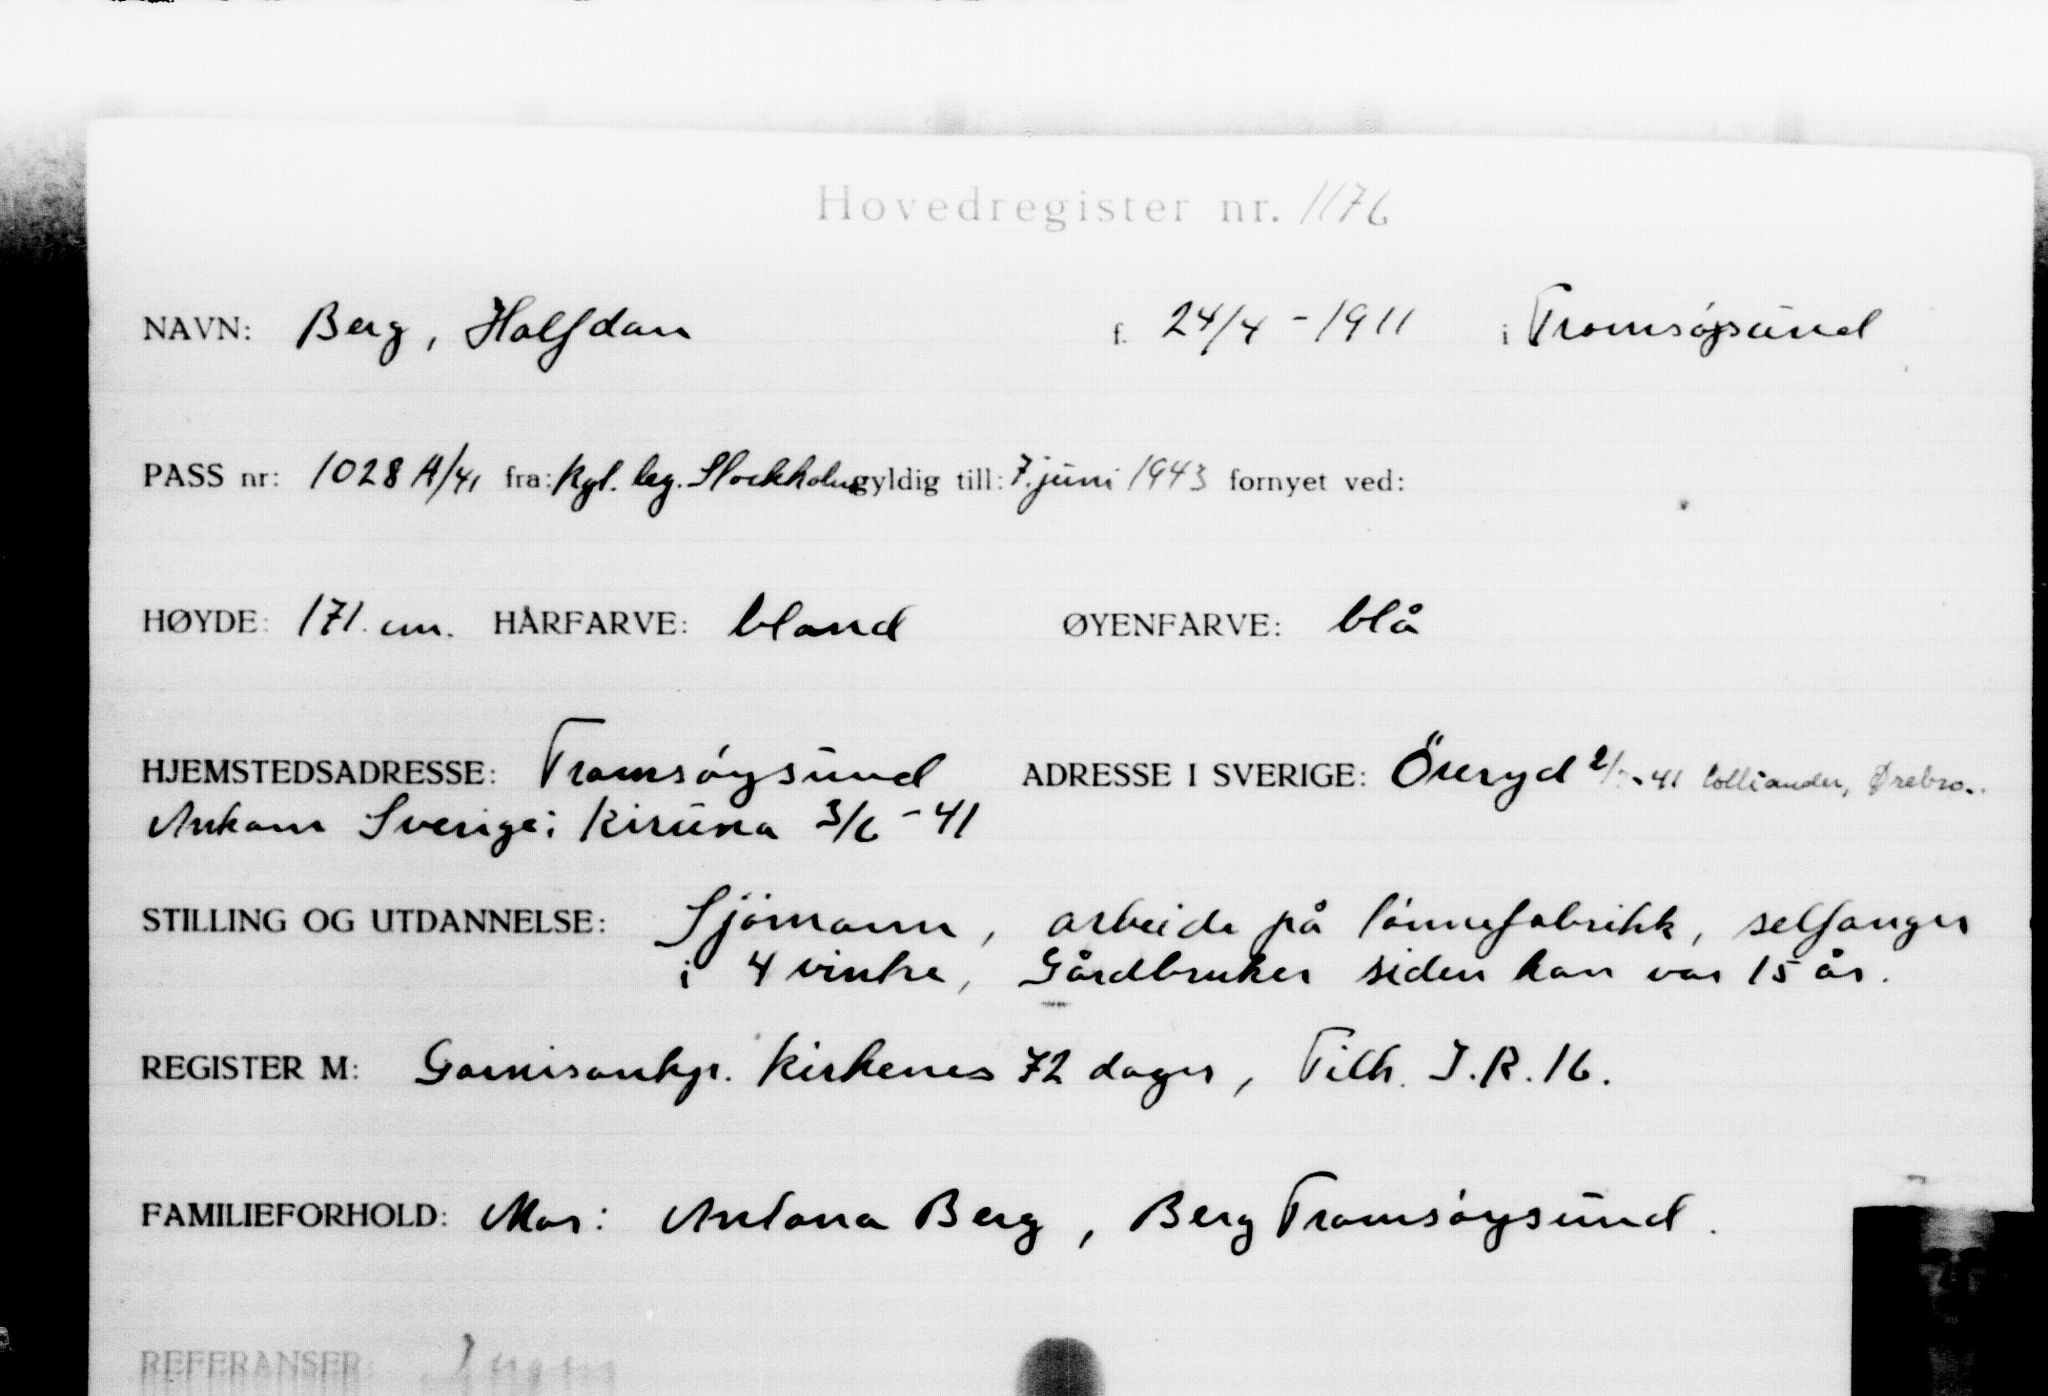 Hovedregister nr. 1176
NAVN: Berg, Halfdan f. 24/4 - 1911 i Tromsøysund
PASS nr: 1028 A/41 fra: Kgl. leg. Stockholm gyldig till: 7. juni 1943 fornyet ved:
HØYDE: 171 cm. HÅRFARVE: blond ØYENFARVE: blå
HJEMSTEDSADRESSE: Tromsöysund ADRESSE I SVERIGE: Öreryd 41 Colliander, Ørebro.
Ankom Sverige: Kiruna 3/6 - 41
STILLING OG UTDANNELSE: Sjömann, arbeide på tönnefabrikk, selfanger
i 4 vintre, Gårdbruker siden han var 15 år.
REGISTER M: Garnisonkp. Kirkenes 72 dager, Tilh. I.R. 16.
FAMILIEFORHOLD: Mor: Antona Berg, Berg Tromsöysund.
REFERANSER: Ingen